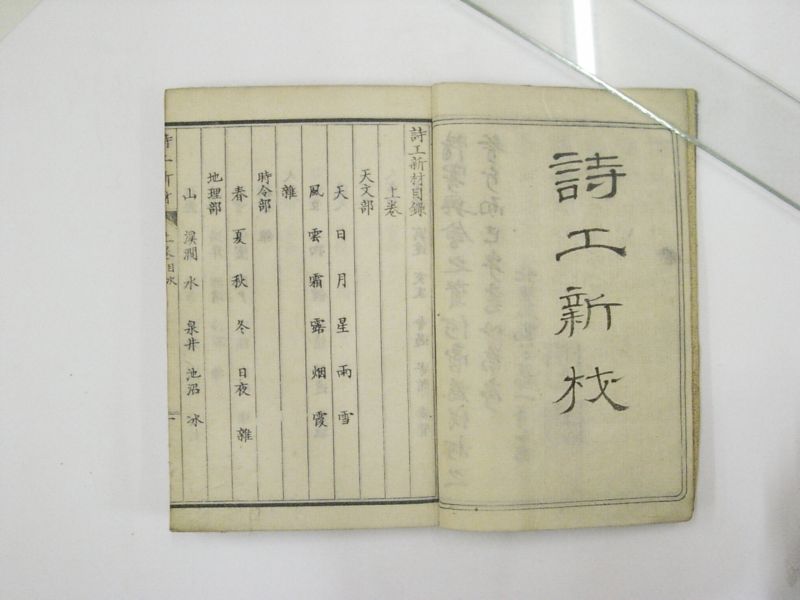 詩工新材
詩工新材目錄
上卷
天文部
天 日 月 星 雨 雪
風 雲 霜 露 烟 霞
雜
時令部
春 夏 秋 冬 日夜 雜
地理部
山 溪澗 水 泉井 池沼 冰
詩工新材